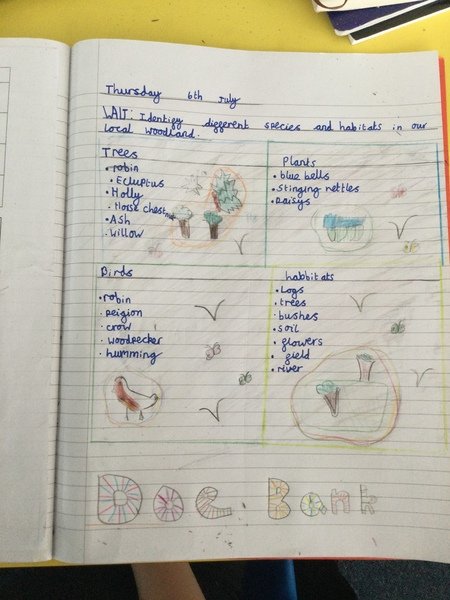 Thursday 6th July
WALT: Identify different species and habitats in our
local woodland.
Trees
• robin
• Ecluptus
• Holly
• Horse chestnut
• Ash
• Willow
Plants
• blue bells
• stinging nettles
• Daisys
Birds
• robin
• peigion
• crow
• woodpecker
• humming
habbitats
• Logs
• trees
• bushes
• soil
• flowers
• field
• river
Doe Bank